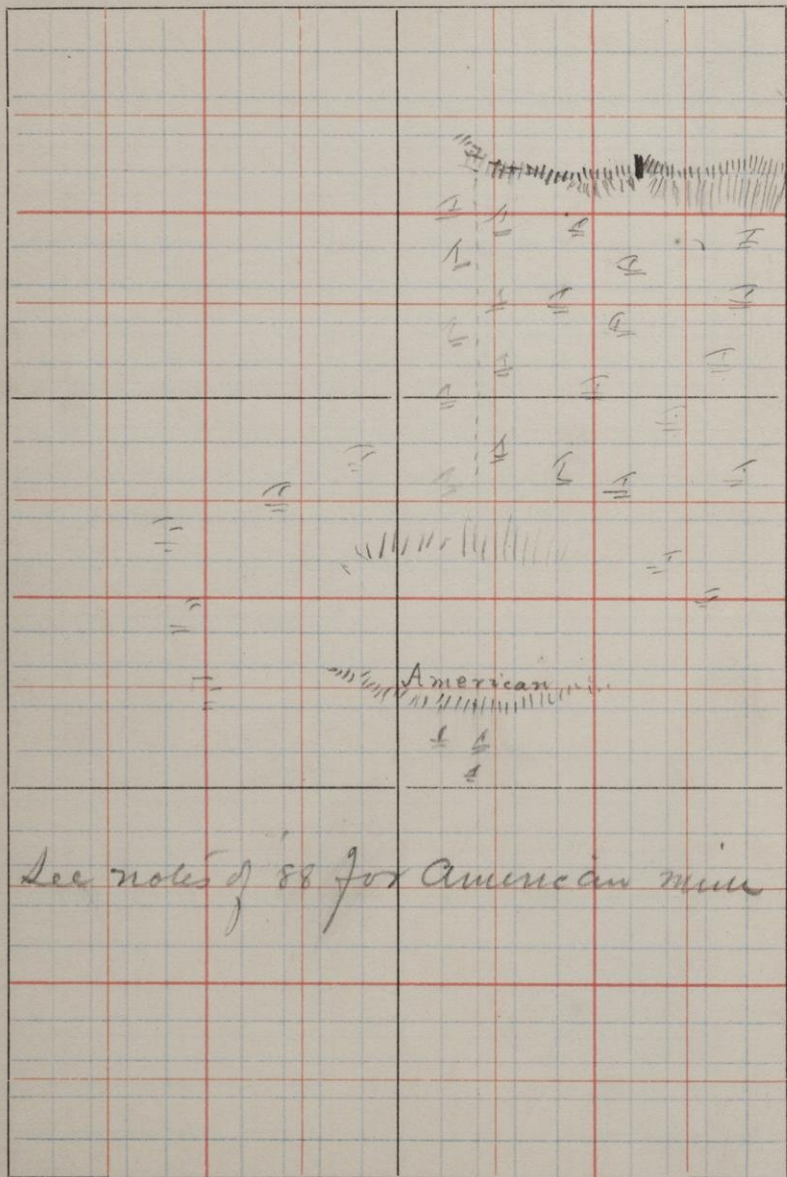 American
See notes of '88 for American mine